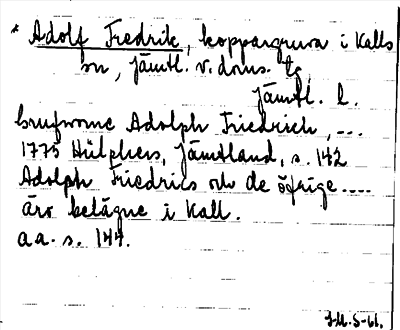 * Adolf Fredrik, koppargruva i Kalls
sn, Jämtl. v. doms. tg,
Jämtl. l.
Grufvorne Adolph Friedrich, ...
1775 Hülphers, Jämtland, s. 142
Adolph Friedrics och de öfrige ....
äro belägne i Kall.
a a. s. 144.